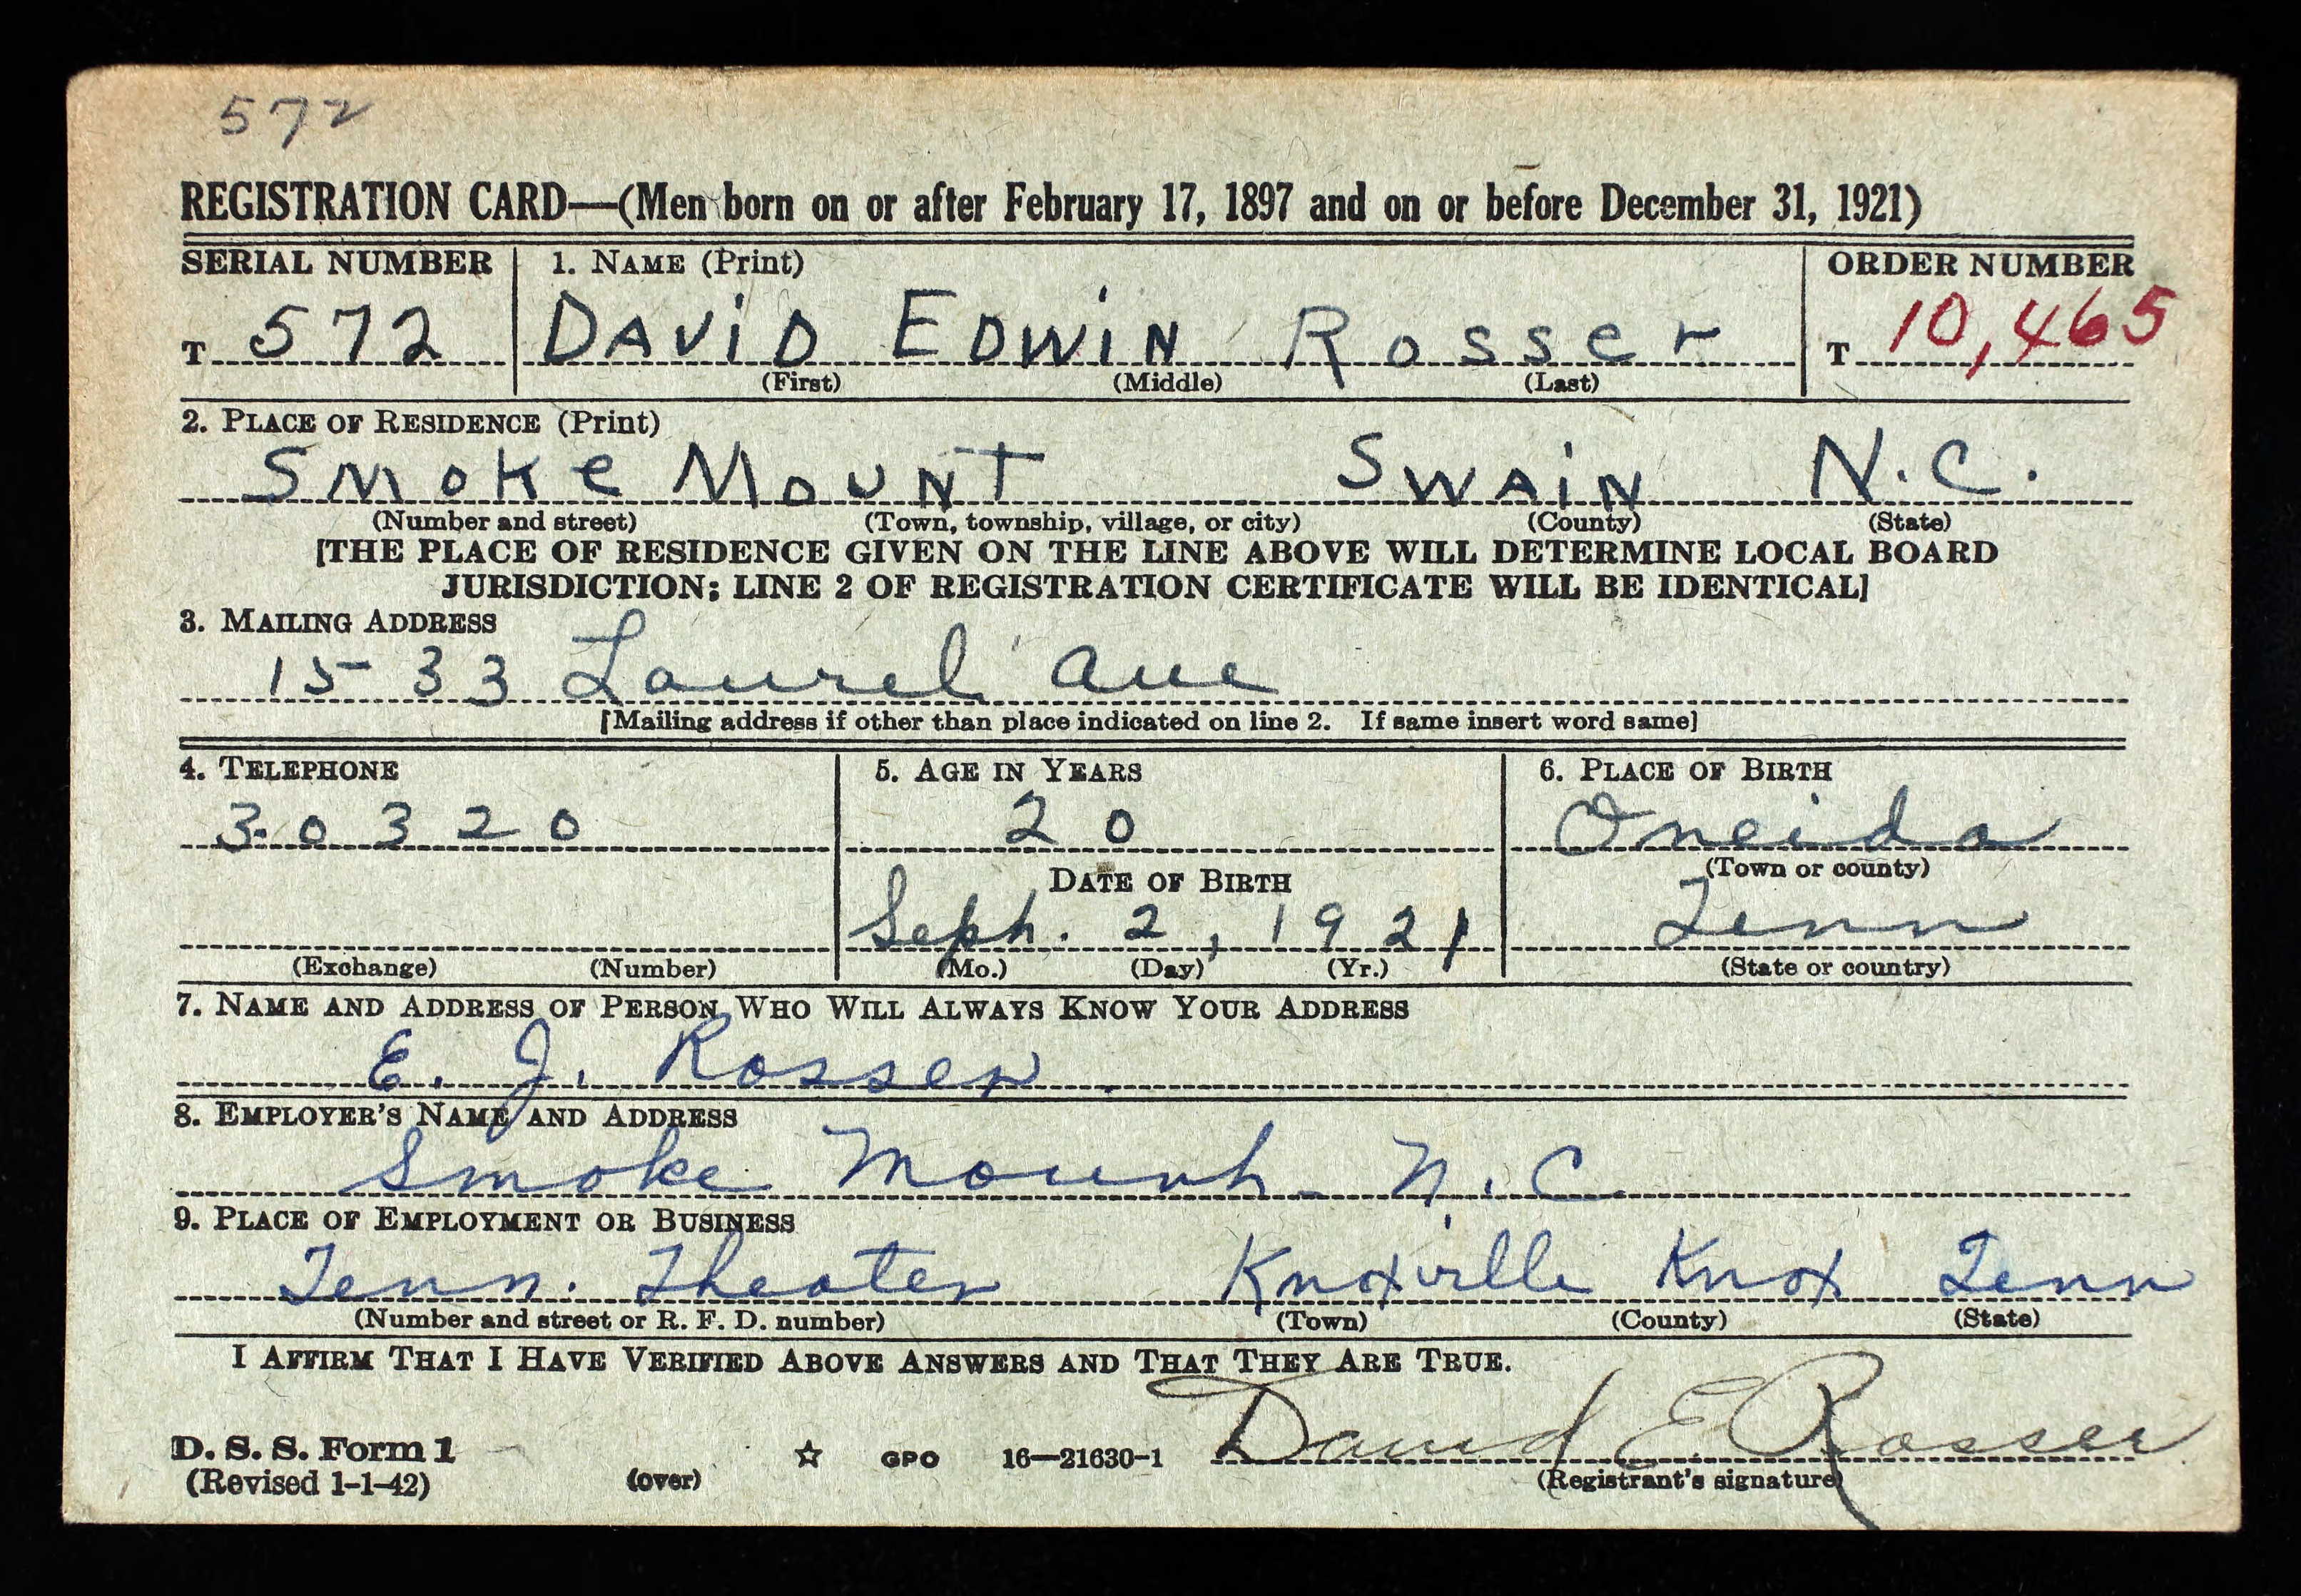 572
REGISTRATION CARD—(Men born on or after February 17, 1897 and on or before December 31, 1921)
SERIAL NUMBER 1. NAME (Print) ORDER NUMBER
T 572 DAViD EDWiN Rosser T 10,465
(First) (Middle) (Last)
2. PLACE OF RESIDENCE (Print)
SMoKe MouNT SWAiN N.C.
(Number and street) (Town, township, village, or city) (County) (State)
[THE PLACE OF RESIDENCE GIVEN ON THE LINE ABOVE WILL DETERMINE LOCAL BOARD
JURISDICTION; LINE 2 OF REGISTRATION CERTIFICATE WILL BE IDENTICAL]
3. MAILING ADDRESS
1533 Laurel Ave
[Mailing address if other than place indicated on line 2. If same insert word same]
4. TELEPHONE 5. AGE IN YEARS 6. PLACE OF BIRTH
30320 20 Oneida
(Town or county)
DATE OF BIRTH
Sept. 2, 1921 Tenn
(Exchange) (Number) (Mo.) (Day) (Yr.) (State or country)
7. NAME AND ADDRESS OF PERSON WHO WILL ALWAYS KNOW YOUR ADDRESS
E. J. Rosser
8. EMPLOYER'S NAME AND ADDRESS
Smoke Mount N.C
9. PLACE OF EMPLOYMENT OR BUSINESS
Tenn. Theater Knoxville Knox Tenn
(Number and street or R. F. D. number) (Town) (County) (State)
I AFFIRM THAT I HAVE VERIFIED ABOVE ANSWERS AND THAT THEY ARE TRUE.
D. S. S. Form 1 GPO 16—21630-1 David E Rosser
(Revised 1-1-42) (over) (Registrant's signature)